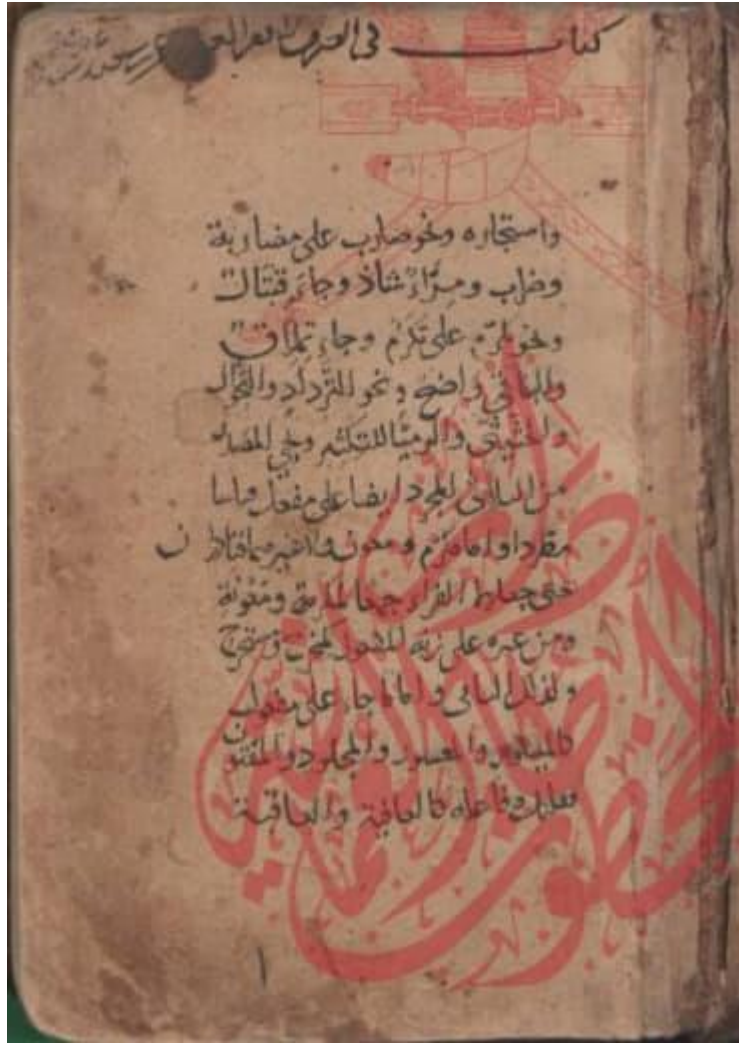 كتاب في الصرف
واستجاره ونحو ضارب على مضاربة
وضراب ومراء شاذ وجاء قيتال
ونحو تكرم على تكرم وجاء تملاق
والباقي واضح ونحو الترداد والتجوال
والحثيثى والرميا للتكثير ويجي المصدر
من الثلاثى المجرد ايضا على مفعل قياسا
مطردا واما مكرم ومعون ولا غير هما فنادران
حتى جعلهما الفراء جمعا لمكرمة ومعونة
ومن غيره على زنة المفعول كمخرج ومستخرج
وكذلك الباقى واما ما جاء على مفعول
كالميسور والمعسور والمجلود والمفتون
فقليل وفاعله كالعافية والعاقبة
١